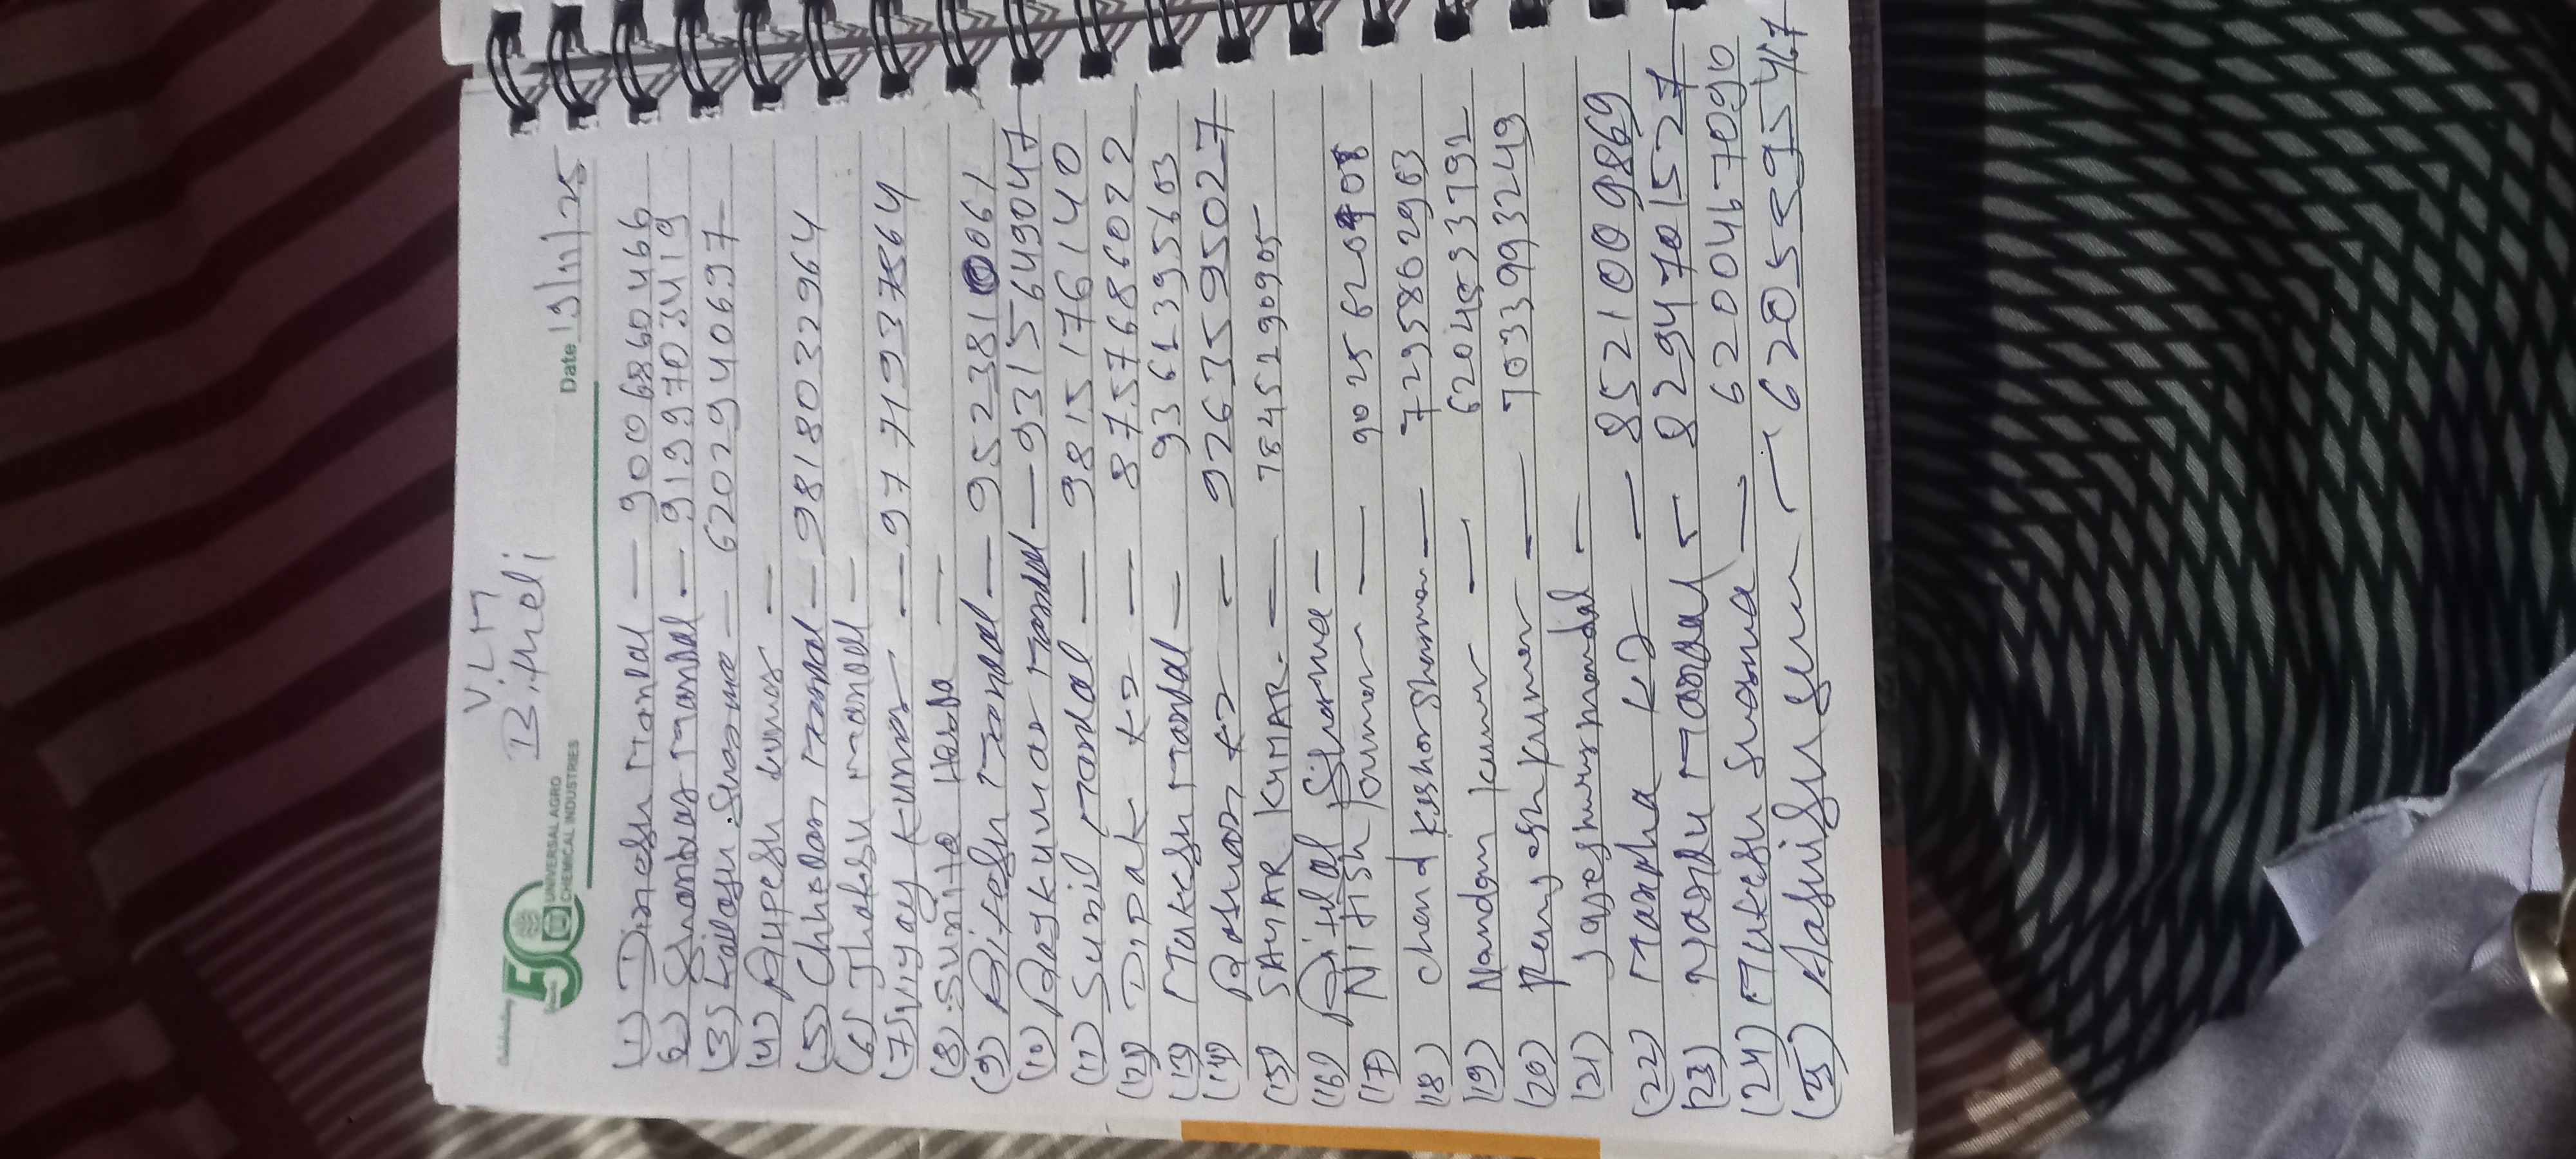 V.L.M
Bitheli
50 UNIVERSAL AGRO
CHEMICAL INDUSTRIES
Date 19/11/25
(1) Dinesh Mandal — 9006860466
(2) Mandal — 9199703419
(3) Kailash Sharma — 6202940697
(4) Rupesh kumar —
(5) Chhedan Mandal — 9818032964
(6) Jhaksu Mandal —
(7) Vijay Kumar — 9771937564
(8) Sunita —
(9) Ritesh Mandal — 9523810061
(10) Rajkumar Mandal — 9315649047
(11) Sunil Mandal — 9815176140
(12) Dipak Kr — 8757686022
(13) Mukesh Mandal — 9361395603
(14) Roshan Kr — 9263595027
(15) SAMAR KUMAR. — 7845290905
(16) Sharma —
(17) NITISH — 9025620908
(18) chand Kishor Sharma — 7295862963
(19) Nandan kumar — 6204533791
(20) kumar — 7033993249
(21) mandal —
(22) Kr — 8521009869
(23) Nandu Mandal — 8294701527
(24) Mukesh Sharma — 6200467090
(25) — 6205595467